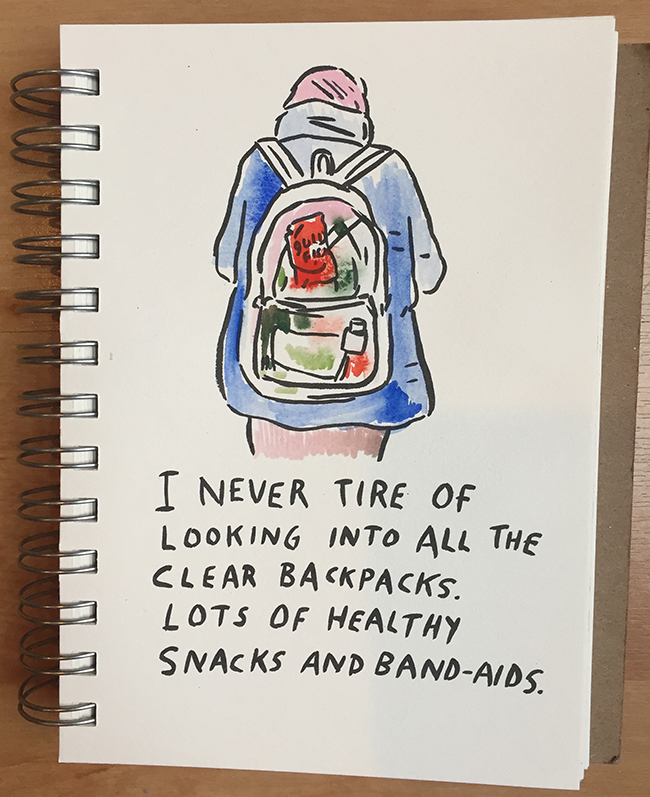 I NEVER TIRE OF
LOOKING INTO ALL THE
CLEAR BACKPACKS.
LOTS OF HEALTHY
SNACKS AND BAND-AIDS.